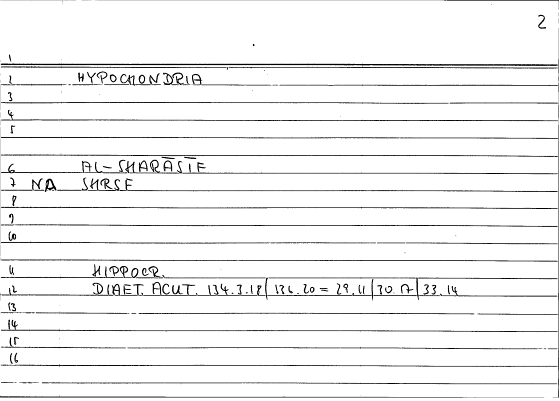 2
1
2 HYPOCHONDRIA
3
4
5
6 AL-SHARĀSĪF
7 NA SHRSF
8
9
10
11 HIPPOCR.
12 DIAET. ACUT. 134.3.18| 136.20 = 29.11|30.17|33.14
13
14
15
16